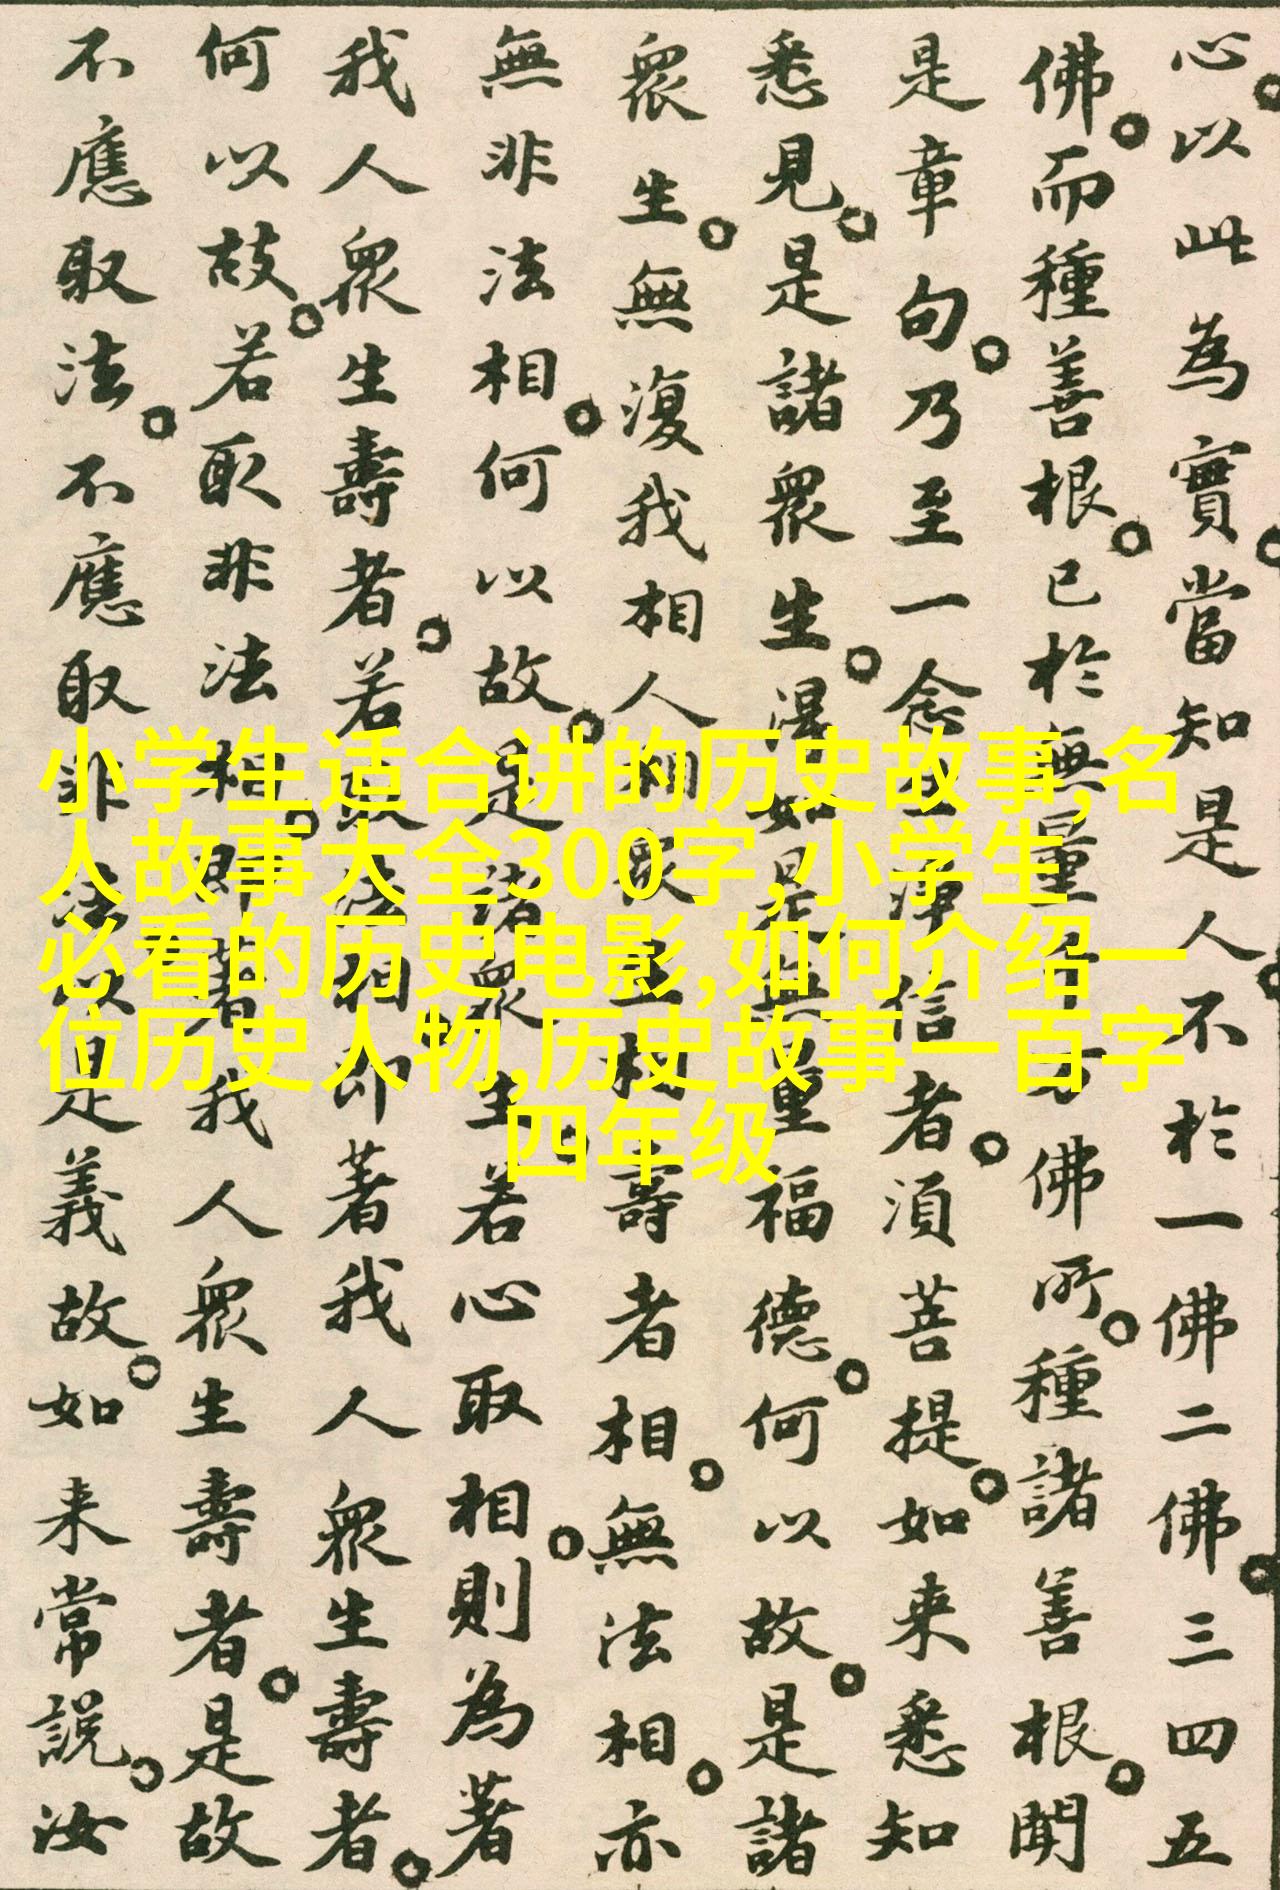 心。以此為實。當知是人。不於一佛二佛。三四五
佛。而種善根。已於無量千万佛所。種諸善根。聞
是章句。乃至一念生淨信者。須菩提。如来悉知
悉見。是諸眾生。得如是無量福德。何以故。是諸
眾生。無復我相人相眾生相壽者相。無法相。亦
無非法相。何以故。是諸眾生。若心取相。則為著
我人眾生壽者。若取法相。即著我人眾生壽者。
何以故。若取非法相。即著我人眾生壽者。是故
不應取法。不應取非法。以是義故。如来常說。汝
小学生适合讲的历史故事,名
人故事大全300字,小学生
必看的历史电影,如何介绍一
位历史人物,历史故事一百字
四年级